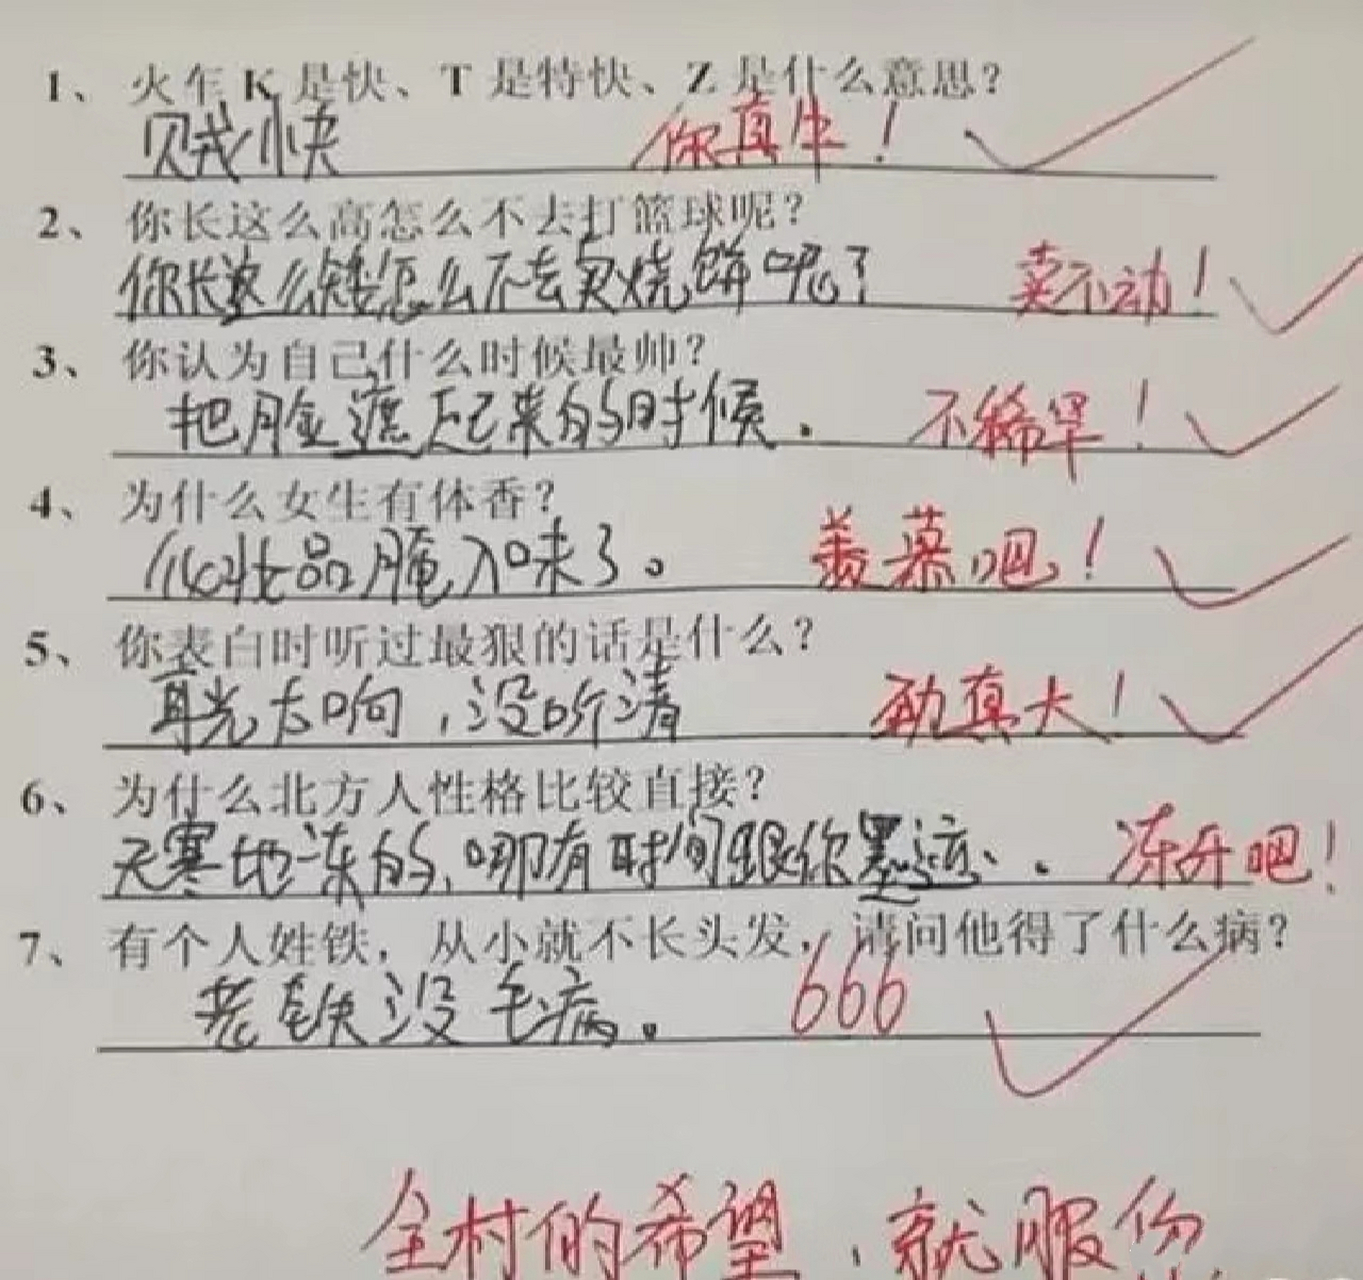 1、火车 K 是快、T 是特快、Z 是什么意思？
贼快 你真牛！
2、你长这么高怎么不去打篮球呢？
你长这么矮怎么不去卖烧饼呢？ 卖不动！
3、你认为自己什么时候最帅？
把脸遮起来的时候. 不稀罕！
4、为什么女生有体香？
化妆品腌入味了。 羡慕吧！
5、你表白时听过最狠的话是什么？
耳光太响,没听清 劲真大！
6、为什么北方人性格比较直接？
天寒地冻的,哪有时间跟你墨迹、. 冻牙吧！
7、有个人姓铁，从小就不长头发，请问他得了什么病？
老铁没毛病。 666
全村的希望,就服你